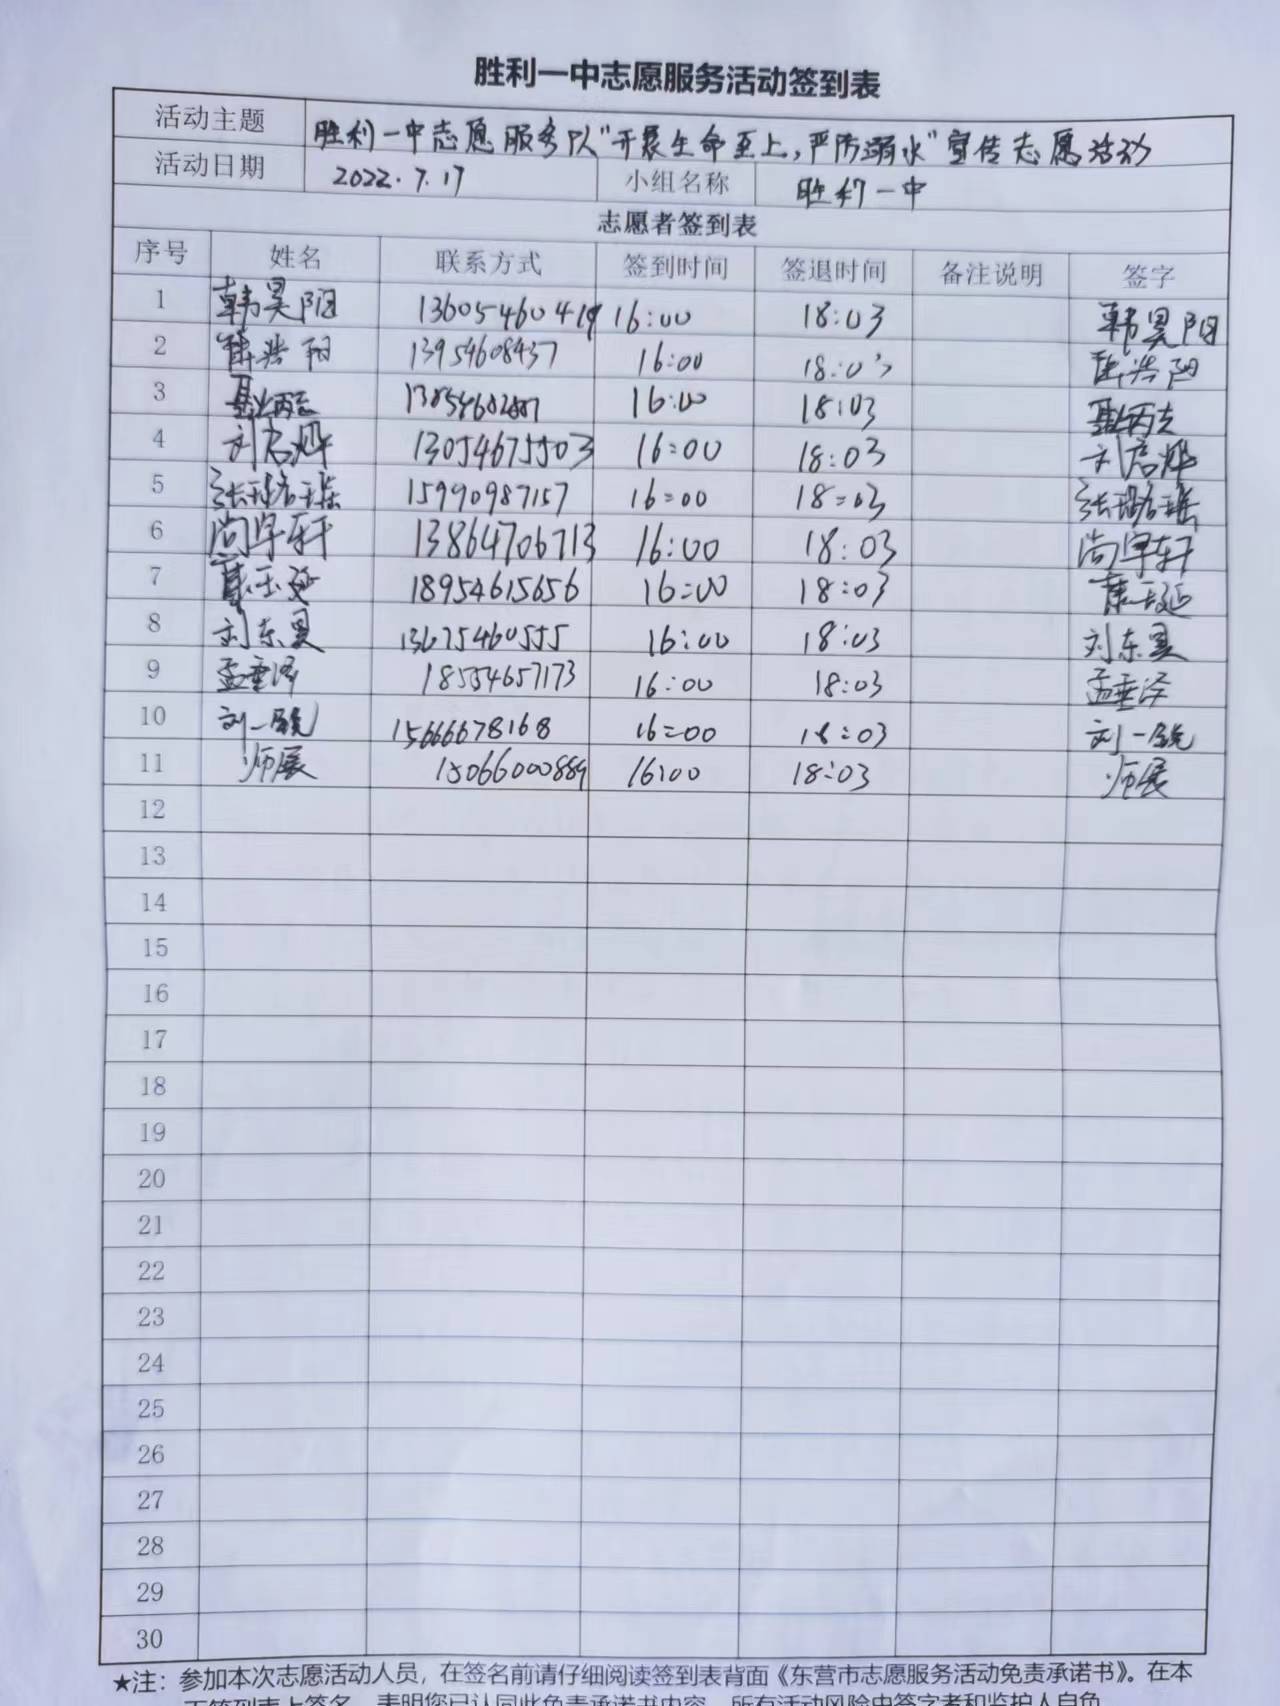 胜利一中志愿服务活动签到表
活动主题 胜利一中志愿服务队“开展生命至上，严防溺水”宣传志愿活动
活动日期 2022.7.17 小组名称 胜利一中
志愿者签到表
序号 姓名 联系方式 签到时间 签退时间 备注说明 签字
1 韩昊阳 13605460419 16:00 18:03 韩昊阳
2 浩阳 13954608437 16:00 18:03 浩阳
3 16:00 18:03
4 刘启烨 13054675503 16:00 18:03 刘启烨
5 张璐瑶 15990987157 16:00 18:03 张璐瑶
6 尚宇轩 13864706713 16:00 18:03 尚宇轩
7 18954615656 16:00 18:03
8 刘东昊 13675460555 16:00 18:03 刘东昊
9 孟垂泽 18554657173 16:00 18:03 孟垂泽
10 刘一 15666678168 16:00 18:03 刘一
11 师展 15066000889 16:00 18:03 师展
12
13
14
15
16
17
18
19
20
21
22
23
24
25
26
27
28
29
30
★注：参加本次志愿活动人员，在签名前请仔细阅读签到表背面《东营市志愿服务活动免责承诺书》。在本
签到表上签名，表明您已认同此免责承诺书内容，所有活动风险由签字者和监护人自负